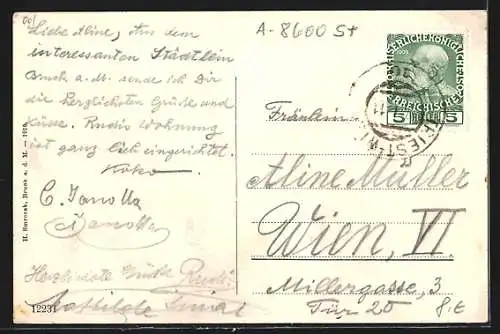 A-8600 St
Liebe Aline, Aus dem
interessanten Städtlein
Bruck a. M. sende ich Dir
die herzlichsten Grüsse und
Küsse. Rudis Wohnung
ist ganz lieb eingerichtet.
Koko
C. Janotta
Janotta
Herzlichste Grüsse Rudi
Mathilde
H. Burczak, Bruck a. d. M. — 1910
12231
5 5
TRIEST
Fräulein
Aline Müller
Wien, VI
Millergasse, 3
Tür 20
8.E